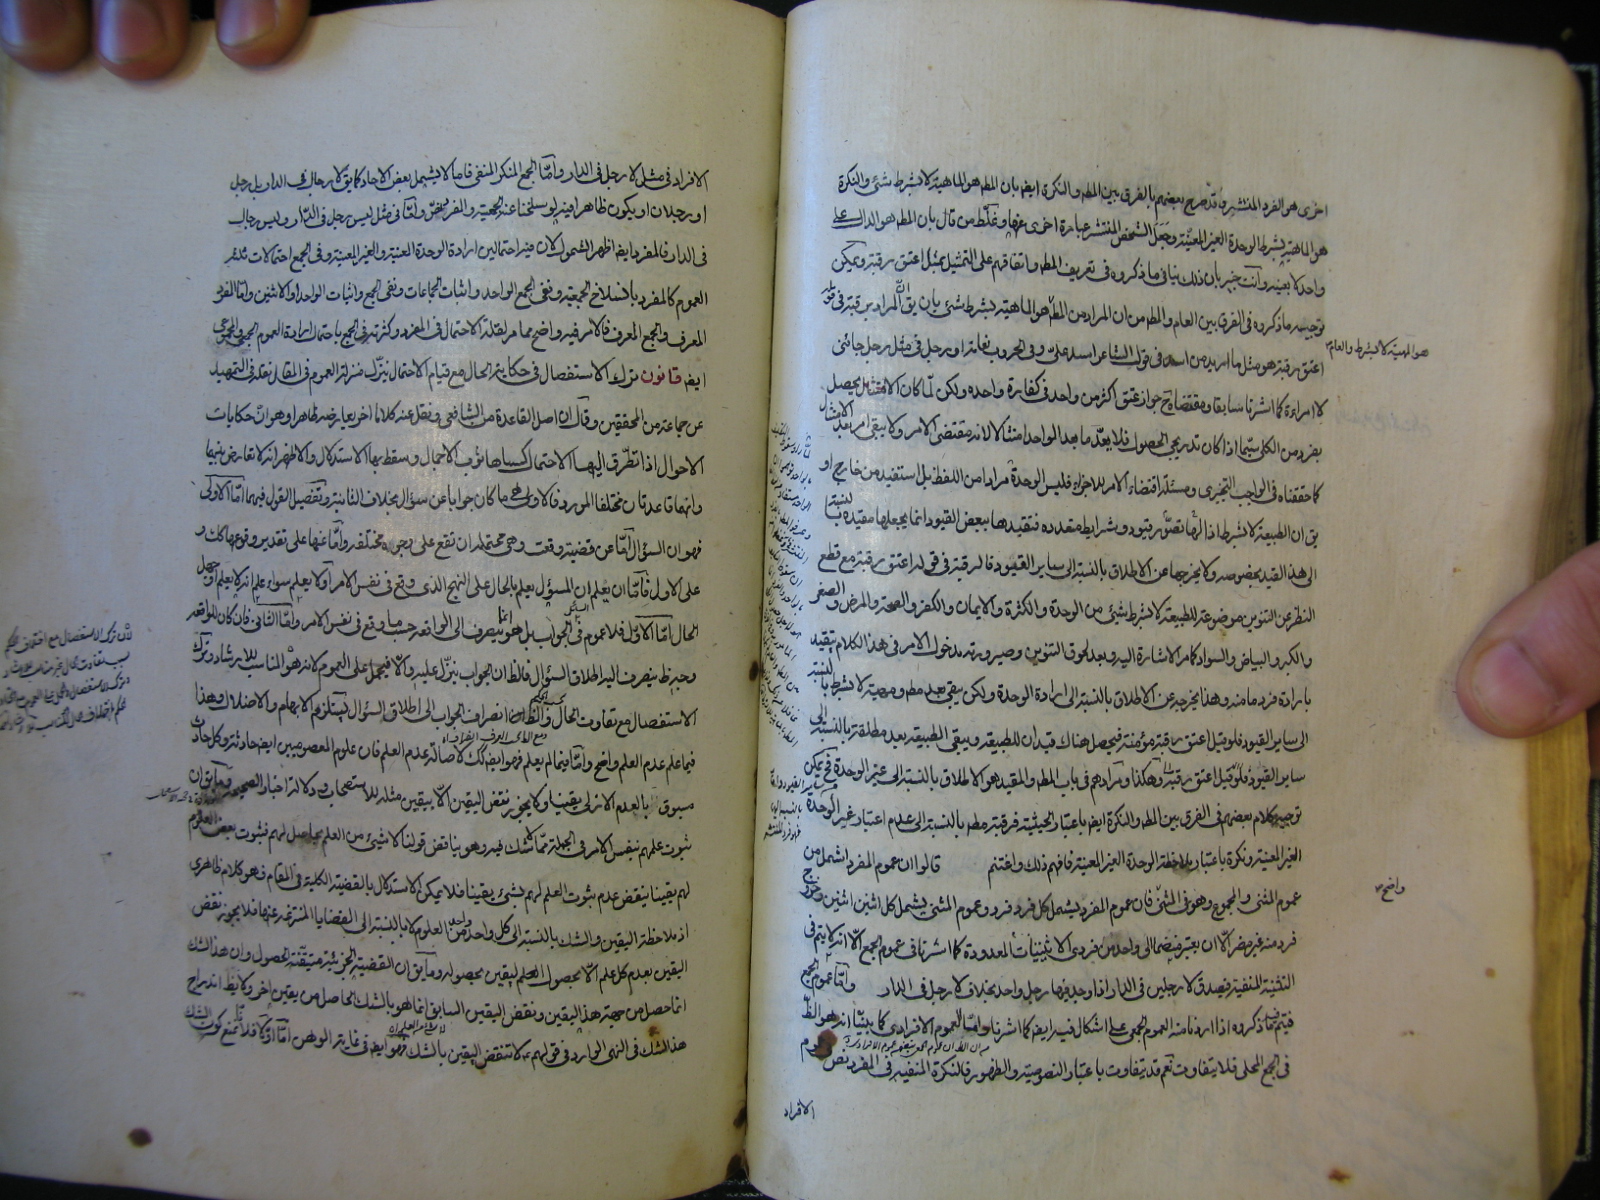 اخرى هو الفرد المنتشر وقد صرح بعضهم بالفرق بين المط والنكرة ايض بان المط هو الماهية لا بشرط شئ والنكرة
هو الماهية بشرط الوحدة الغير المعينة وجعل الشخص المنتشر عبارة اخرى عنها وغلط من قال بان المط هو الدال على
واحد لا بعينه وانت خبير بان ذلك ينافي ما ذكروه في تعريف المط واتفاقهم على التمثيل بمثل اعتق رقبة ويمكن
توجيه ما ذكروه في الفرق بين العام والمط من ان المراد من المط هو الماهية لا بشرط شئ بان يق ان المراد برقبة في قوله
اعتق رقبة هو مثل ما اريد من اسد في قول الشاعر اسد علي وفي الحروب نعامة او رجل في مثل رجل جائني
لا امراءة كما اشرنا سابقا ومقتضاه ح جواز عتق اكثر من واحد في كفارة واحده ولكن لما كان الامتثال يحصل
بفرد من الكلي سيما اذا كان تدريجي الحصول فلا يعد ما بعد الواحد امتثالا لانه مقتضى الامر ولا يبقى امر بعد الامتثال
كما حققناه في الواجب التخييري ومسئلة اقتضاء الامر للاجزاء فليس الوحدة مرادا من اللفظ بل استفيد من خارج او
يق ان الطبيعة لا بشرط اذا لها تصور قيود وشرايط متعدده فتقيدها ببعض القيود انما يجعلها مقيده بالنسبة
الى هذا القيد بخصوصه ولا يخرجها عن الاطلاق بالنسبة الى ساير القيود فالرقبة في قوله اعتق رقبة مع قطع
النظر عن التنوين موضوعة للطبيعة لا بشرط شئ من الوحدة والكثرة والايمان والكفر والصحة والمرض والصغر
والكبر والبياض والسواد كما مر الاشارة اليه وبعد لحوق التنوين وصيرورته مدخول الامر في هذا الكلام يتقيد
بارادة فرد ما منه وهذا يخرجه عن الاطلاق بالنسبة الى ارادة الوحدة ولكن يبقى بعد مط ومهية لا بشرط بالنسبة
الى ساير القيود فلو قيل اعتق رقبة مؤمنة فيحصل هناك قيدان للطبيعة ويبقى الطبيعة بعد مطلقة بالنسبة الى
ساير القيود فلو قيل اعتق رقبة وهكذا ومرادهم في باب المط والمقيد هو الاطلاق بالنسبة الى غير الوحدة فح يمكن
توجيه كلام بعضهم في الفرق بين المط والنكرة ايض باعتبار الحيثية فرقبة مط بالنسبة الى عدم اعتبار غير الوحدة
الغير المعينة ونكرة باعتبار ملاحظة الوحدة الغير المعينة فافهم ذلك واغتنم قالوا ان عموم المفرد اشمل من
عموم المثنى والمجموع وهو في المثنى فان عموم المفرد يشمل كل فرد فرد وعموم المثنى يشمل كل اثنين اثنين وخروج
فرد منه غير مضر الا ان يعتبر منضما الى واحد من فردي الاثنينيات المعدودة كما اشرنا في عموم الجمع الا انه لا يتم في
التثنية المنفية فيصدق لا رجلين في الدار اذا وجد فيها رجل واحد بخلاف لا رجل في الدار واما عموم الجمع
فيتم فيما ذكروه اذا اردنا منه العموم الجمعي على اشكال فيه ايض كما اشرنا واما العموم الافرادي كما بينا انه هو الظ
في الجمع المحلى فلا يتفاوت نعم قد يتفاوت باعتبار النصوصية والظهور فالنكرة المنفية في المفرد نص
الافراد
هو المهية لا بشرط والعام
واضح
الافراد في مثل لا رجل في الدار واما الجمع المنكر المنفي فاما لا يشمل بعض الاحاد كما يق لا رجال في الدار بل رجل
او رجلان او يكون ظاهرا فيه لو سلخنا عنه الجمعية والفرض واما في مثل ليس رجل في الدار وليس رجال
في الدار فالمفرد ايض اظهر لشموله لان فيه احتمالين ارادة الوحدة العينية والغير المعينة وفي الجمع احتمالات ثلثة
العموم كالمفرد بانسلاخ الجمعية ونفي الجمع الواحد واثبات الجماعات ونفي الجمع واثبات الواحد او الاثنين واما المفرد
المعرف والجمع المعرف فالامر فيه واضح مما مر لقلة الاحتمال في المفرد وكثرته في الجمع باحتمال ارادة العموم الجمعي والمجموعي
ايض قانون ترك الاستفصال في حكاية الحال مع قيام الاحتمال ينزل منزلة العموم في المقال نقله في التمهيد
عن جماعة من المحققين وقال ان اصل القاعدة من الشافعي ونقل عنه كلاما اخر يعارضه ظاهرا وهو ان حكايات
الاحوال اذا تطرق اليها الاحتمال كساها ثوب الاجمال وسقط بها الاستدلال والاظهر انه لا تعارض بينهما
وانهما قاعدتان مختلفتا المورد فالاولى هي ما كان جوابا عن سؤال بخلاف الثانية وتفصيل القول فيهما اما الاولى
فهو ان السؤال اما عن قضية وقعت وهي محتملة ان تقع على وجوه مختلفة واما عنها على تقدير وقوعها كك و
على الاول فاما ان يعلم ان المسؤل يعلم بالحال على النهج الذي وقع في نفس الامر او لا يعلم سواء علم انه لا يعلم او جهل
الحال اما الاول فلا عموم في الجواب بل هو انما ينصرف الى الواقعة حسب ما وقع في نفس الامر واما الثاني فان كان للواقعة
وجه ظ ينصرف اليه اطلاق السؤال فالظ ان الجواب ينزل عليه والا فيحمل على العموم لانه هو المناسب للارشاد وترك
الاستفصال مع تفاوت الحال والظ من انصراف الجواب الى اطلاق السؤال يستلزم الابهام والاضلال وهذا
فيما علم عدم العلم واضح واما فيما لم يعلم فهو ايض كك لاصالة عدم العلم فان علوم المعصومين ايض حادثة وكل حادث
مسبوق بالعدم الازلي يقينا ولا يجوز نقض اليقين الا بيقين مثله للاستصحاب ودلالة اخبار الصحيحة وما يق ان
ثبوت علمهم بنفس الامر في الجملة مما لا شك فيه وهو يناقض قولنا لا شئ من العلم بحاصل لهم فثبوت بعض العلوم
لهم يقينا ينقض عدم ثبوت العلم لهم بشئ يقينا فلا يمكن الاستدلال بالقضية الكلية في المقام فهو كلام ظاهري
اذ ملاحظة اليقين والشك بالنسبة الى كل واحد واحد من العلوم لا بالنسبة الى القضايا المنتزعة عنها فلا يجوز نقض
اليقين بعدم كل علم الا بحصول العلم ليقين بحصوله وما يق ان القضية الجزئية متيقنة الحصول وان هذا الشك
انما حصل من جهة هذا اليقين ونقض اليقين السابق انما هو بالشك الحاصل من يقين اخر ولا يظ اندراج
هذا الشك في النهي الوارد في قولهم ع لا تنقض اليقين بالشك فهو ايض في غاية الوهن اما اولا فلانا نمنع كون الشك